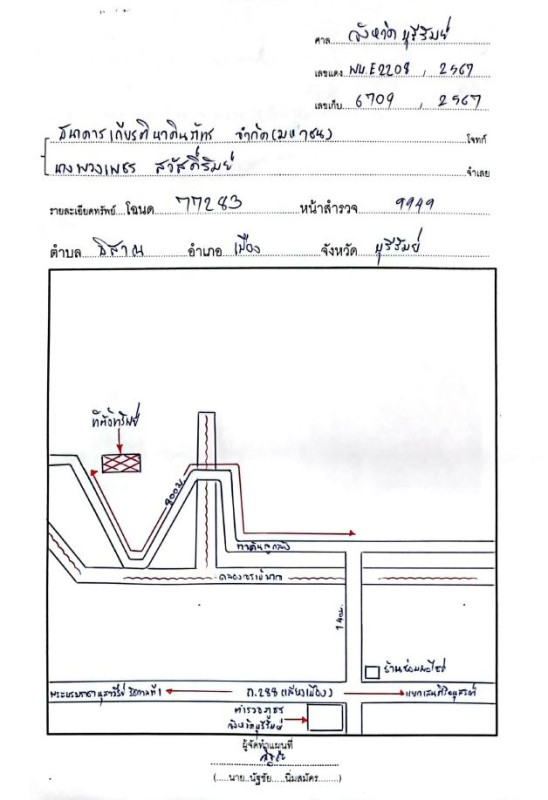 ศาล จังหวัดบุรีรัมย์
เลขแดง ผบ.E2208 , 2567
เลขเก็บ 6709 , 2567
ธนาคารเกียรตินาคินภัทร จำกัด(มหาชน) โจทก์
นางพวงเพชร สวัสดิ์รัมย์ จำเลย
รายละเอียดทรัพย์ โฉนด 77283 หน้าสำรวจ 9949
ตำบล อิสาณ อำเภอ เมือง จังหวัด บุรีรัมย์
ที่ตั้งทรัพย์
400ม.
ทางดินลูกรัง
คลองชลประทาน
140ม.
ร้านซ่อมมอไซต์
พระบรมราชานุสาวรีย์ รัชกาลที่1
ถ.288(เลี่ยงเมือง)
ตำรวจภูธร
จังหวัดบุรีรัมย์
ผู้จัดทำแผนที่
(....นาย..นัฐชัย.....นิ่มสมัคร........)